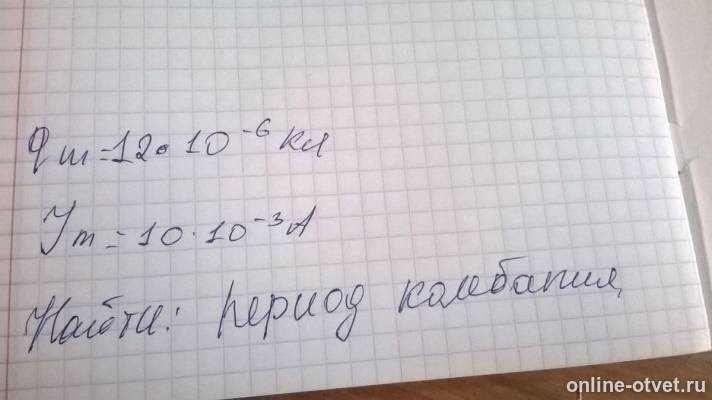 qm = 12 · 10⁻⁶ кл
Jm = 10 · 10⁻³ А
Найти: период колебания
online-otvet.ru